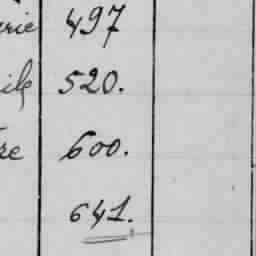 rie 497
ile 520.
re 600.
641.